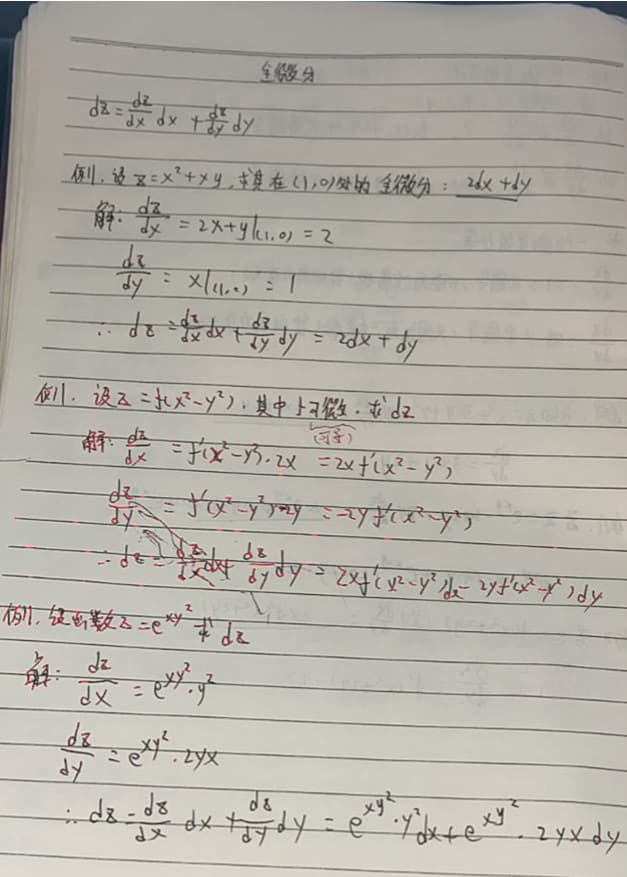 全微分
dz = dz/dx dx + dz/dy dy
例1. 设 z = x² + xy, 求其在 (1,0) 处的全微分: 2dx + dy
解: dz/dx = 2x + y|(1,0) = 2
dz/dy = x|(1,0) = 1
∴ dz = dz/dx dx + dz/dy dy = 2dx + dy
例1. 设 z = f(x² - y²), 其中 f 可微, 求 dz
(可导)
解: dz/dx = f'(x² - y²)·2x = 2x f'(x² - y²)
dz/dy = f'(x² - y²)·-2y = -2y f'(x² - y²)
∴ dz = dz/dx dx + dz/dy dy = 2x f'(x² - y²) dx - 2y f'(x² - y²) dy
例1. 设函数 z = e^xy² 求 dz
解: dz/dx = e^xy² · y²
dz/dy = e^xy² · 2yx
∴ dz = dz/dx dx + dz/dy dy = e^xy² · y² dx + e^xy² · 2yx dy